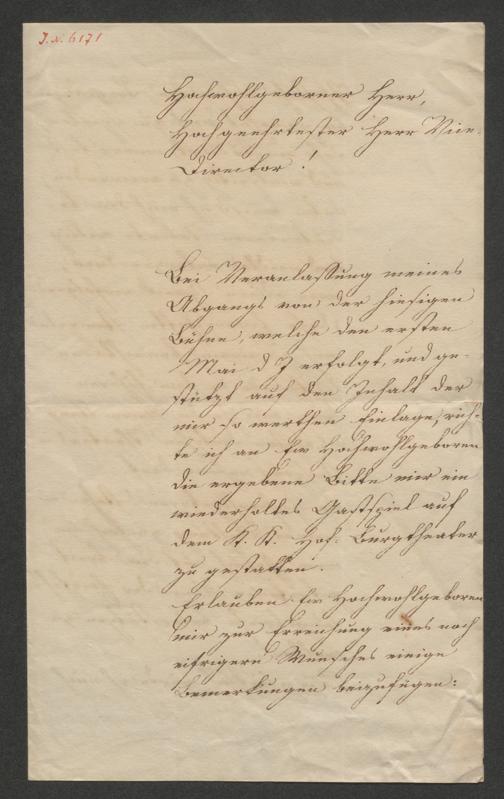 J. N. 6171
Hochwohlgeborner Herr,
Hochgeehrtester Herr Vice-
Director!
Bei Veranlassung meines
Abgangs von der hiesigen
Bühne, welche den ersten
Mai d J erfolgt, und ge-
stützt auf den Inhalt der
mir so werthen Einlage, rich-
te ich an Ew Hochwohlgeboren
die ergebene Bitte mir ein
wiederholtes Gastspiel auf
dem K. K. Hof-Burgtheater
zu gestatten.
Erlauben Ew Hochwohlgeboren
mir zur Erreichung eines noch
eifrigern Wunsches einige
Bemerkungen beizufügen: